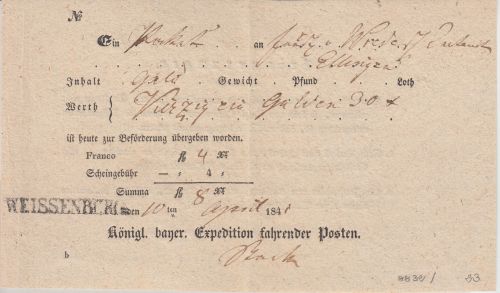 №
Ein Packet an fürstl. Wrede'sches
Ellingen
Inhalt Geld Gewicht Pfund Loth
Werth { Vierzig ein Gulden 30 x
ist heute zur Beförderung übergeben worden.
Franco fl. 4 Xr
Scheingebühr — „ 4 „
Summa fl. 8 Xr
WEISSENBURG den 10 ten April 184
Königl. bayer. Expedition fahrender Posten.
b
53